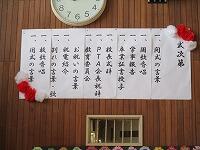 式次第
一、開式の言葉
一、国歌斉唱
一、学事報告
一、卒業証書授与
一、校長式辞
一、PTA会長祝辞
一、教育委員会
一、お祝いの言葉
一、祝電紹介
一、別れの言葉・歌
一、校歌斉唱
一、閉式の言葉